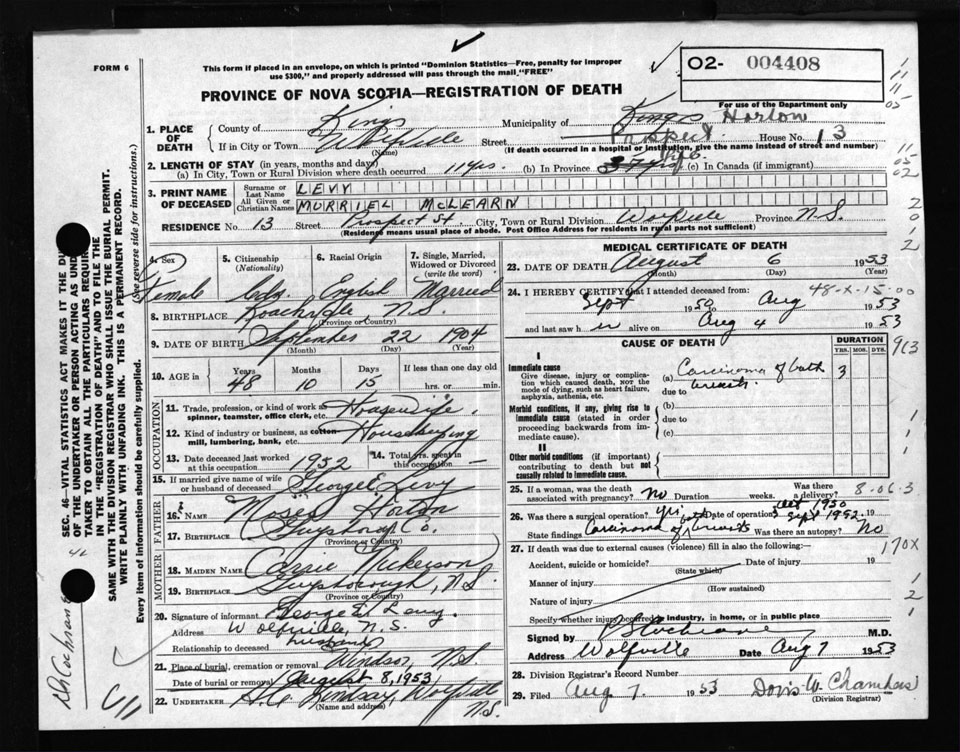 FORM 6
This form if placed in an envelope, on which is printed "Dominion Statistics—Free, penalty for improper
use $300," and properly addressed will pass through the mail "FREE"
O2- 004408
For use of the Department only
PROVINCE OF NOVA SCOTIA—REGISTRATION OF DEATH
1. PLACE OF DEATH County of Kings Municipality of Kings Horton
If in City or Town Wolfville (Name) Street Prospect House No. 13
(If death occurred in a hospital or institution, give the name instead of street and number)
2. LENGTH OF STAY (in years, months and days)
(a) In City, Town or Rural Division where death occurred 11 yrs. (b) In Province (c) In Canada (if immigrant)
3. PRINT NAME OF DECEASED Surname or Last Name LEVY
All Given or Christian Names MURRIEL McLEARN
RESIDENCE No. 13 Street Prospect St. City, Town or Rural Division Wolfville Province N.S.
(Residence means usual place of abode. Post Office Address for residents in rural parts not sufficient)
4. Sex Female
5. Citizenship (Nationality) Cdn.
6. Racial Origin English
7. Single, Married, Widowed or Divorced (write the word) Married
8. BIRTHPLACE N.S. (Province or Country)
9. DATE OF BIRTH September 22 1904
(Month) (Day) (Year)
10. AGE in Years 48 Months 10 Days 15 If less than one day old hrs. or min.
OCCUPATION
11. Trade, profession, or kind of work as spinner, teamster, office clerk, etc. Housewife.
12. Kind of industry or business, as cotton mill, lumbering, bank, etc. Housekeeping
13. Date deceased last worked at this occupation 1952
14. Total yrs. spent in this occupation
15. If married give name of wife or husband of deceased George E. Levy
FATHER
16. Name Moses Horton
17. BIRTHPLACE Guysboro Co.
(Province or Country)
MOTHER
18. MAIDEN NAME Carrie Nickerson
19. BIRTHPLACE Guysborough, N.S.
(Province or Country)
20. Signature of informant George E. Levy.
Address Wolfville, N.S.
Relationship to deceased husband
21. Place of burial, cremation or removal Windsor, N.S.
Date of burial or removal August 8, 1953
22. UNDERTAKER Lindsay, Wolfville N.S.
(Name and address)
MEDICAL CERTIFICATE OF DEATH
23. DATE OF DEATH August 6 1953
(Month) (Day) (Year)
24. I HEREBY CERTIFY that I attended deceased from: 48-X-15-00
Sept 1950 Aug 1953
and last saw her alive on Aug 4 1953
CAUSE OF DEATH
DURATION
YRS. MOS. DYS.
I
Immediate cause
Give disease, injury or complication which caused death, NOT the mode of dying, such as heart failure, asphyxia, asthenia, etc.
(a) Carcinoma of both breasts. 3
due to
Morbid conditions, if any, giving rise to immediate cause (stated in order proceeding backwards from immediate cause).
(b)
due to
(c)
II
Other morbid conditions (if important) contributing to death but not causally related to immediate cause.
25. If a woman, was the death associated with pregnancy? No Duration weeks. Was there a delivery? 8-06-3
26. Was there a surgical operation? yes Date of operation 1950 Sept 1952 19
State findings Carcinoma of both breasts Was there an autopsy? No
27. If death was due to external causes (violence) fill in also the following:—
Accident, suicide or homicide? (State which) Date of injury 19
Manner of injury (How sustained)
Nature of injury
Specify whether injury occurred in industry, in home, or in public place
Signed by M.D.
Address Wolfville Date Aug 7 1953
28. Division Registrar's Record Number
29. Filed Aug 7. 1953 Doris W. Chambers
(Division Registrar)
170X
SEC. 46—VITAL STATISTICS ACT MAKES IT THE DU
OF THE UNDERTAKER OR PERSON ACTING AS UND
TAKER TO OBTAIN ALL THE PARTICULARS REQUIR
IN THE "REGISTRATION OF DEATH" AND TO FILE THE
SAME WITH THE DIVISION REGISTRAR WHO SHALL ISSUE THE BURIAL PERMIT.
WRITE PLAINLY WITH UNFADING INK. THIS IS A PERMANENT RECORD.
Every item of information should be carefully supplied.
(See reverse side for instructions.)